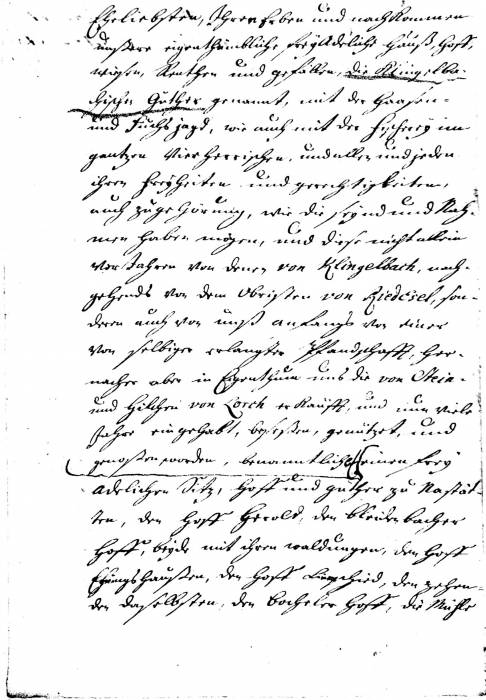 Eheliebsten, Ihren Erben und nachkommen
unßere eigenthümbliche freyadeliche Hauß, Hoff,
wiesen, Renthen und gefällen, die Klingelba-
chische Güther genannt, mit der Haasen-
und Fuchs jagd, wie auch mit der Fischerey im
gantzen Vierherrischen, und allen und jeden
ihren Freyheiten und gerechtigkeiten,
auch zugehörung, wie die seynd und Nah-
men haben mögen, und diese nicht allein
vor Jahren von denen von Klingelbach, nach-
gehends von dem Obristen von Riedesel, son-
deren auch von unß anfangs vor einer
von selbiger erlangter Pfandschafft, her-
nacher aber in Eigenthum uns die von Stein-
und Hilchen von Lorch erkaufft, und nun viele
Jahre eingehabt, besessen, genützet, und
genossen worden, benanntlichen einen frey
adelichen Sitz, Hoff und güther zu Nastät-
ten, den Hoff Herold, den bleidenbacher
Hoff, beyde mit ihren waldungen, den Hoff
haußen, den Hoff, den zehen-
den daselbsten, den Bacheler Hoff, die Mühle